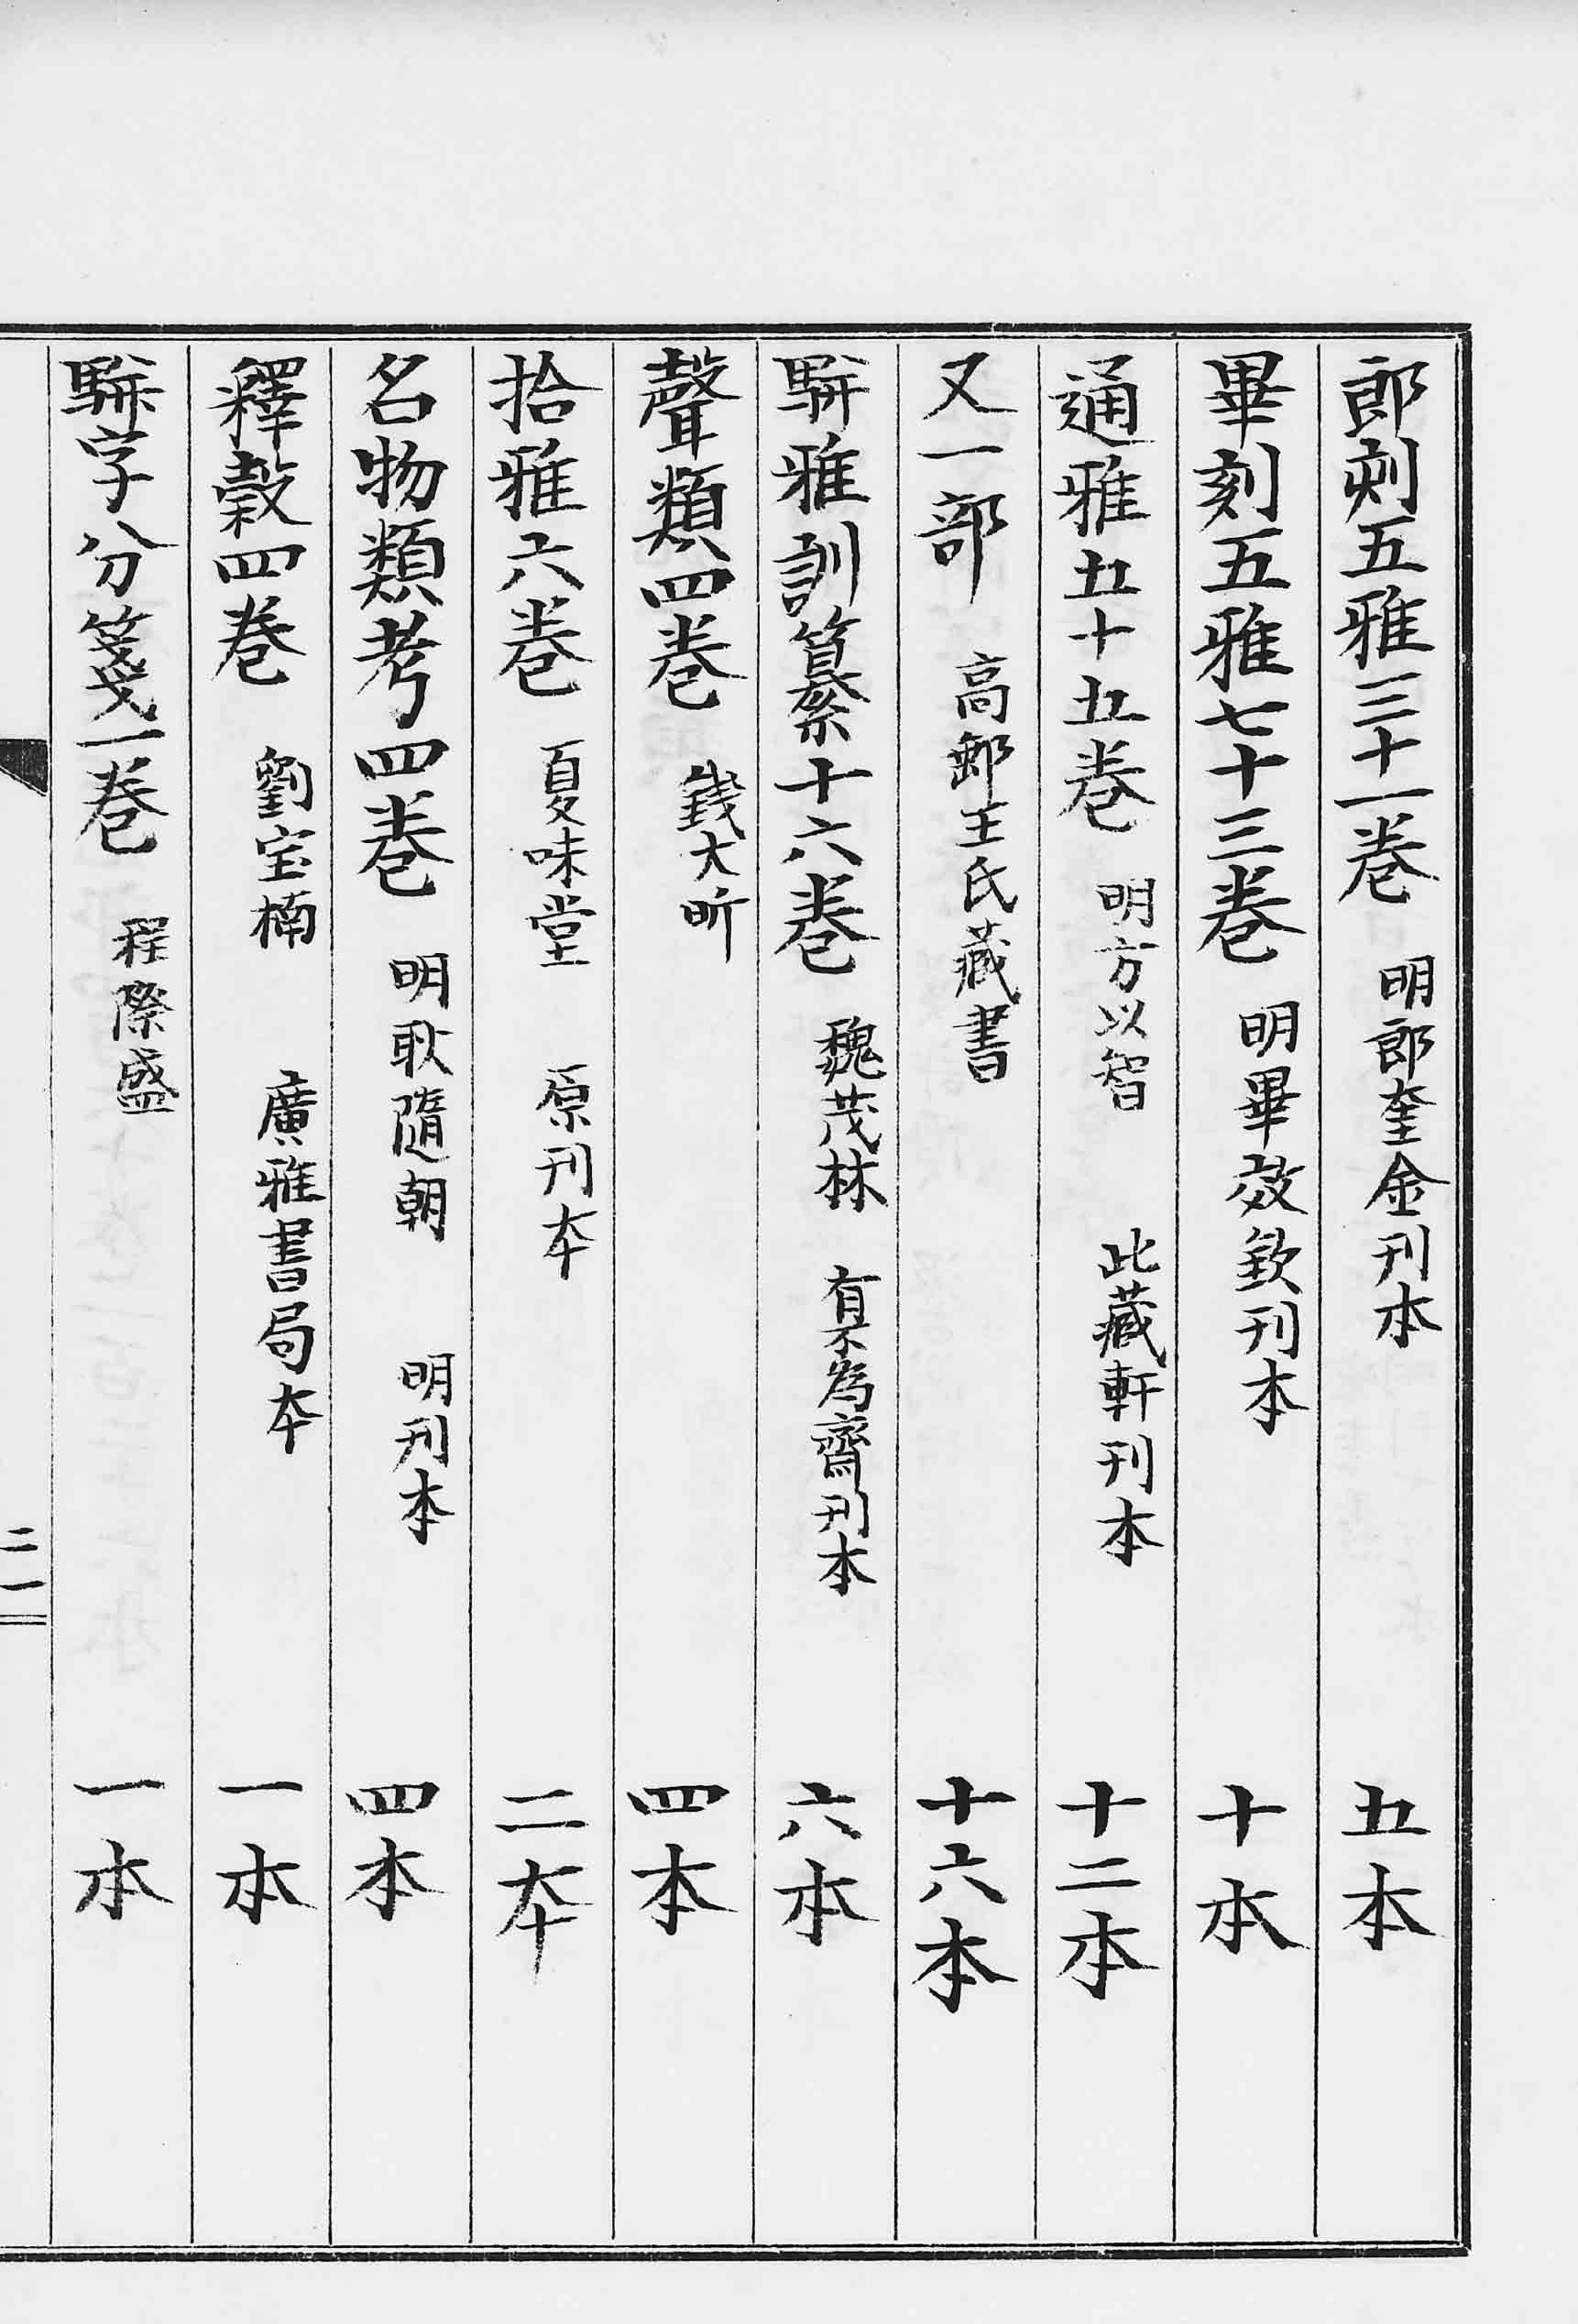 郎刻五雅三十一卷　明郎奎金刊本　五本
畢刻五雅七十三卷　明畢效欽刊本　十本
通雅五十五卷　明方以智　此藏軒刊本　十二本
又一部　高郵王氏藏書　十六本
駢雅訓纂十六卷　魏茂林　有不為齋刊本　六本
聲類四卷　錢大昕　四本
拾雅六卷　夏味堂　原刊本　二本
名物類考四卷　明耿隨朝　明刊本　四本
釋穀四卷　劉宝楠　廣雅書局本　一本
駢字分箋一卷　程際盛　一本
二一